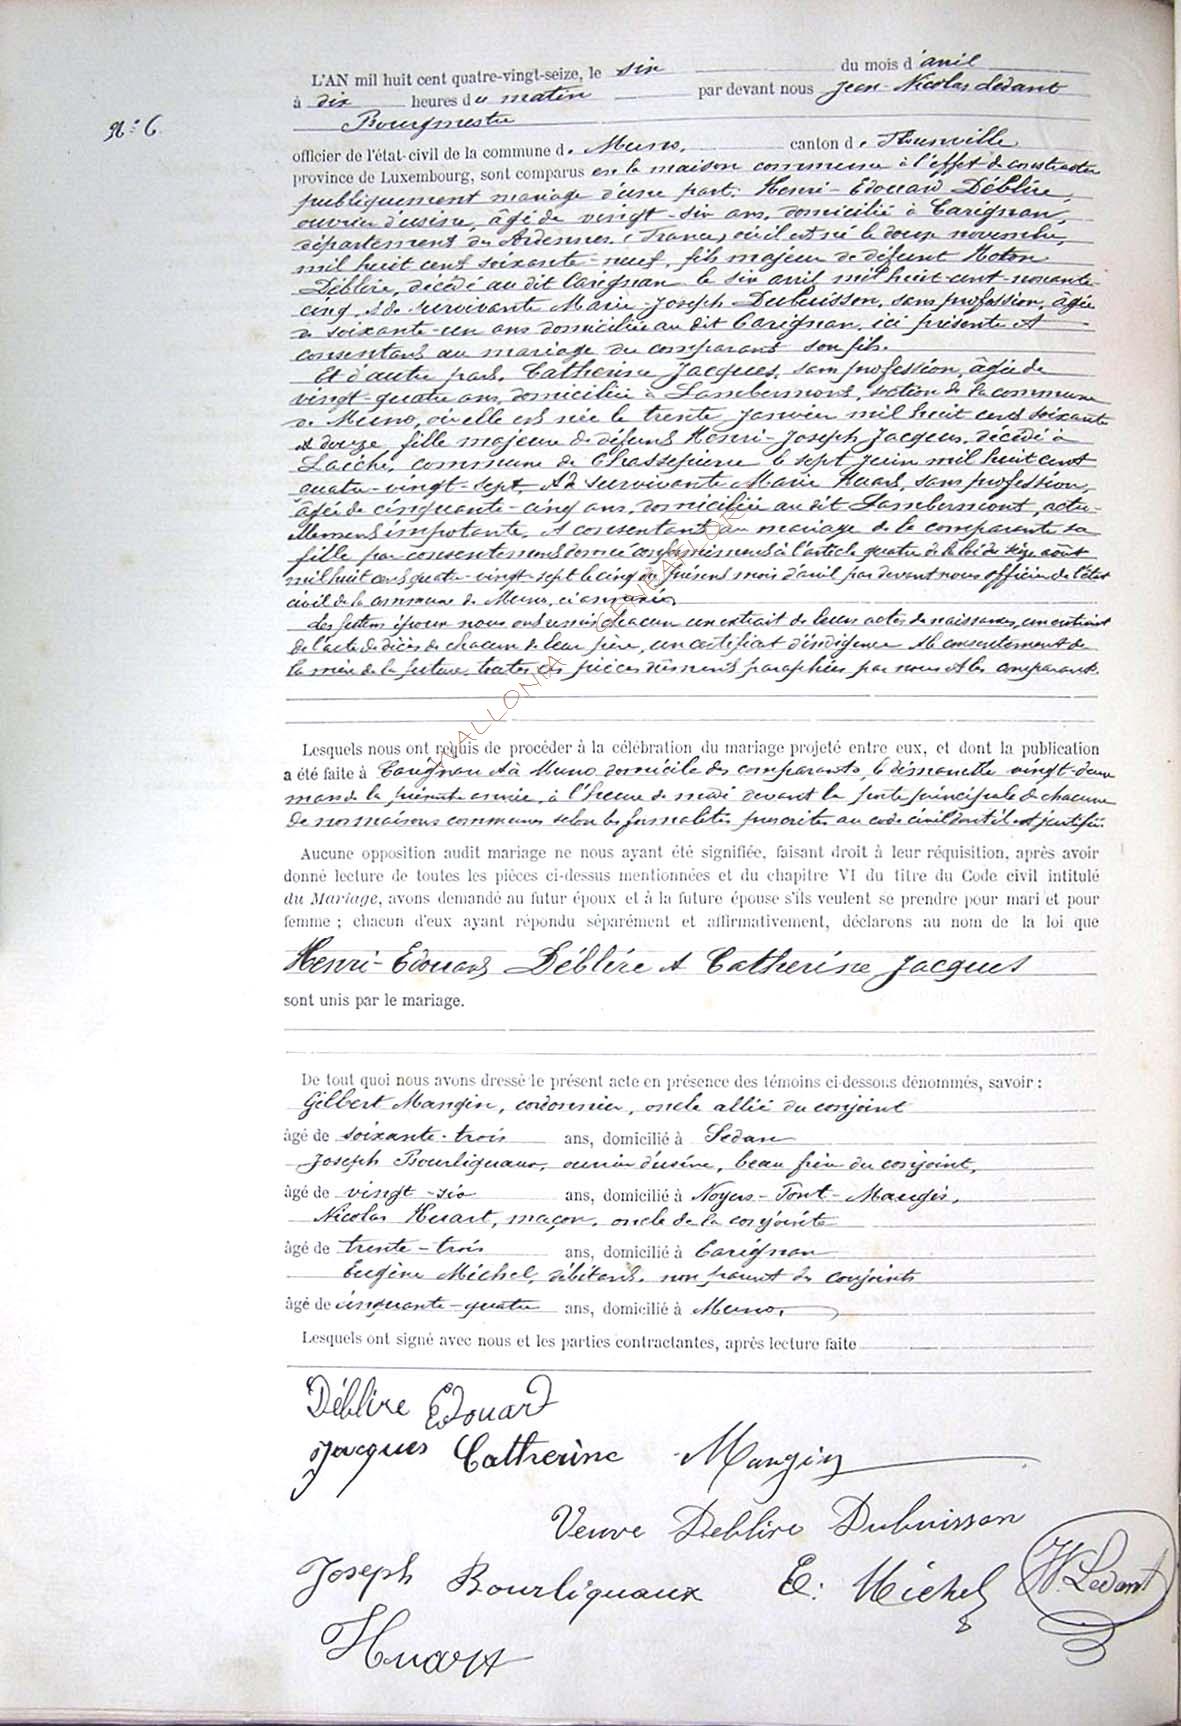 L'AN mil huit cent quatre-vingt-seize, le six du mois d'avril
à dix heures du matin par devant nous Jean-Nicolas Ledant
Bourgmestre
N° 6
officier de l'état-civil de la commune de Muno, canton de Florenville
province de Luxembourg, sont comparus en la maison commune à l'effet de contracter
publiquement mariage d'une part. Henri-Edouard Déblire,
ouvrier d'usine, âgé de vingt-six ans, domicilié à Carignan,
département des Ardennes, (France) où il est né le douze novembre,
mil huit cent soixante-neuf, fils majeur de défunt
Déblire, décédé au dit Carignan le six avril mil huit-cent-nonante
cinq, et de survivante Marie-Joseph Dubuisson, sans profession, âgée
de soixante-un ans domiciliée au dit Carignan, ici présente et
consentant au mariage du comparant son fils.
Et d'autre part, Catherine Jacques, sans profession, âgée de
vingt-quatre ans, domiciliée à Lambermont, section de la commune
de Muno, où elle est née le trente janvier mil huit cent soixante
et douze fille majeure de défunt Henri-Joseph Jacques, décédé à
Laiche, commune de Chassepierre le sept juin mil huit cent
quatre-vingt-sept, et de survivante Marie Huart, sans profession,
âgée de cinquante-cinq ans, domiciliée au dit Lambermont, actu-
ellement impotante, et consentant au mariage de la comparante sa
fille par consentement donné conformément à l'article quatre de la loi du seize août
mil huit cent quatre-vingt-sept le cinq du présent mois d'avril par devant nous officier de l'état
civil de la commune de Muno, ci annexé,
Les futurs époux nous ont remis chacun un extrait de leurs actes de naissances, un extrait
de l'acte de décès de chacun de leur père, un certificat d'indigence et le consentement de
la mère de la future, toutes ces pièces dûment paraphées par nous et les comparants.
WALLONIA GENEAFLOR
Lesquels nous ont requis de procéder à la célébration du mariage projeté entre eux, et dont la publication
a été faite à Carignan et à Muno domicile des comparants, le dimanche vingt-deux
mars de la présente année, à l'heure de midi devant la porte principale de chacune
de nos maisons communes selon les formalités prescrites au code civil dont il est justifié.
Aucune opposition audit mariage ne nous ayant été signifiée, faisant droit à leur réquisition, après avoir
donné lecture de toutes les pièces ci-dessus mentionnées et du chapitre VI du titre du Code civil intitulé
du Mariage, avons demandé au futur époux et à la future épouse s'ils veulent se prendre pour mari et pour
femme ; chacun d'eux ayant répondu séparément et affirmativement, déclarons au nom de la loi que
Henri-Edouard Déblire et Catherine Jacques
sont unis par le mariage.
De tout quoi nous avons dressé le présent acte en présence des témoins ci-dessous dénommés, savoir :
Gilbert Mangin, cordonnier, oncle allié du conjoint
âgé de soixante-trois ans, domicilié à Sedan
Joseph Bourliguaux, ouvrier d'usine, beau frère du conjoint,
âgé de vingt-six ans, domicilié à Noyers-Pont-Maugis,
Nicolas Huart, maçon, oncle de la conjointe
âgé de trente-trois ans, domicilié à Carignan
Eugène Michel, débitant, non parent des conjoints
âgé de cinquante-quatre ans, domicilié à Muno,
Lesquels ont signé avec nous et les parties contractantes, après lecture faite
Déblire Edouard
Jacques Catherine Mangin
Veuve Deblire Dubuisson
Joseph Bourliguaux E. Michel N. Ledant
Huart